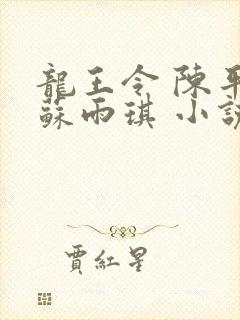 龍王令 陳平
蘇雨琪 小說
賈紅星